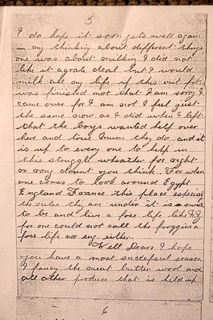 5
I do hope it soon gets well again
in my thinking about different things
one was about milking I did not
like it a great deal but I would
milk all my life if this out fit
was finished not that I am sorry I
came over for I am not I feel just
the same now as I did when I left
that the boys wanted help over
here and some thing they do and it
is up to every one to help in
this struggle wheather for right
or rong dount you think. For when
one comes to look around Egypt
England France this place especialy
the outer they are under it is a sure
to be and live a free life like N.Z.
for one could not call the froggies a
free life not my either.
Well Dears I hope
you have a most sucsesful season
I fancy the meat butter wool and
all other produce that is held up
6